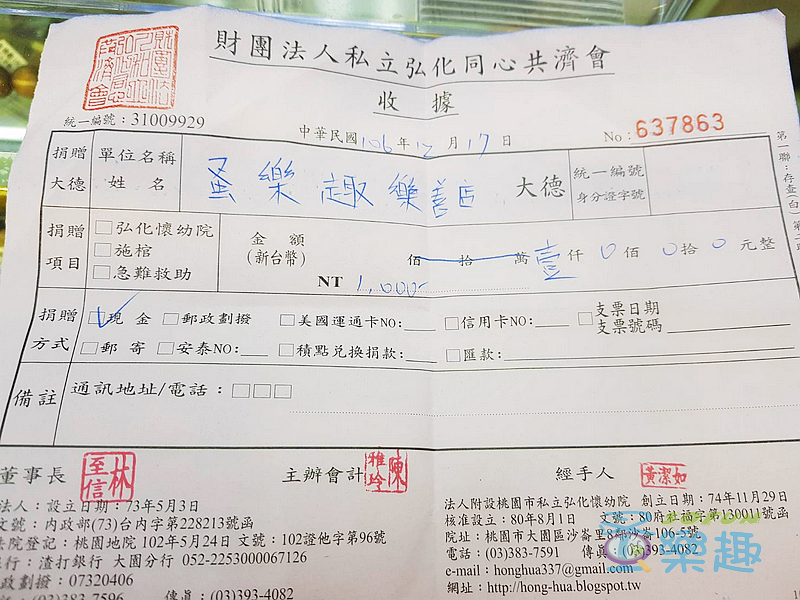 財團法人私立弘化同心共濟會
收據
統一編號：31009929
中華民國 106 年 12 月 17 日
No：637863
捐贈大德 單位名稱 姓名 蚤樂趣樂善店 大德 統一編號 身分證字號
捐贈項目 □弘化懷幼院 □施棺 □急難救助
金額(新台幣) 佰 拾 萬 壹 仟 0 佰 0 拾 0 元整
NT 1,000-
捐贈方式 □現金 □郵政劃撥 □美國運通卡NO: □信用卡NO: □支票日期 支票號碼
□郵寄 □安泰NO: □積點兌換捐款: □匯款:
備註 通訊地址/電話：□□□
第一聯：存查(白)
董事長 林至信 主辦會計 陳雅玲 經手人 黃潔如
法人：設立日期：73年5月3日
文號：內政部(73)台內字第228213號函
法院登記：桃園地院 102年5月24日 文號：102證他字第96號
行：渣打銀行 大園分行 052-2253000067126
政劃撥：07320406
(03)383-7596 傳真：(03)393-4082
法人附設桃園市私立弘化懷幼院 創立日期：74年11月29日
核准設立：80年8月1日 文號：80府社福字第130011號函
院址：桃園市大園區沙崙里8鄰沙崙106-5號
電話：(03)383-7591 傳真：(03)393-4082
e-mail：honghua337@gmail.com
網址：http://hong-hua.blogspot.tw
蚤樂趣